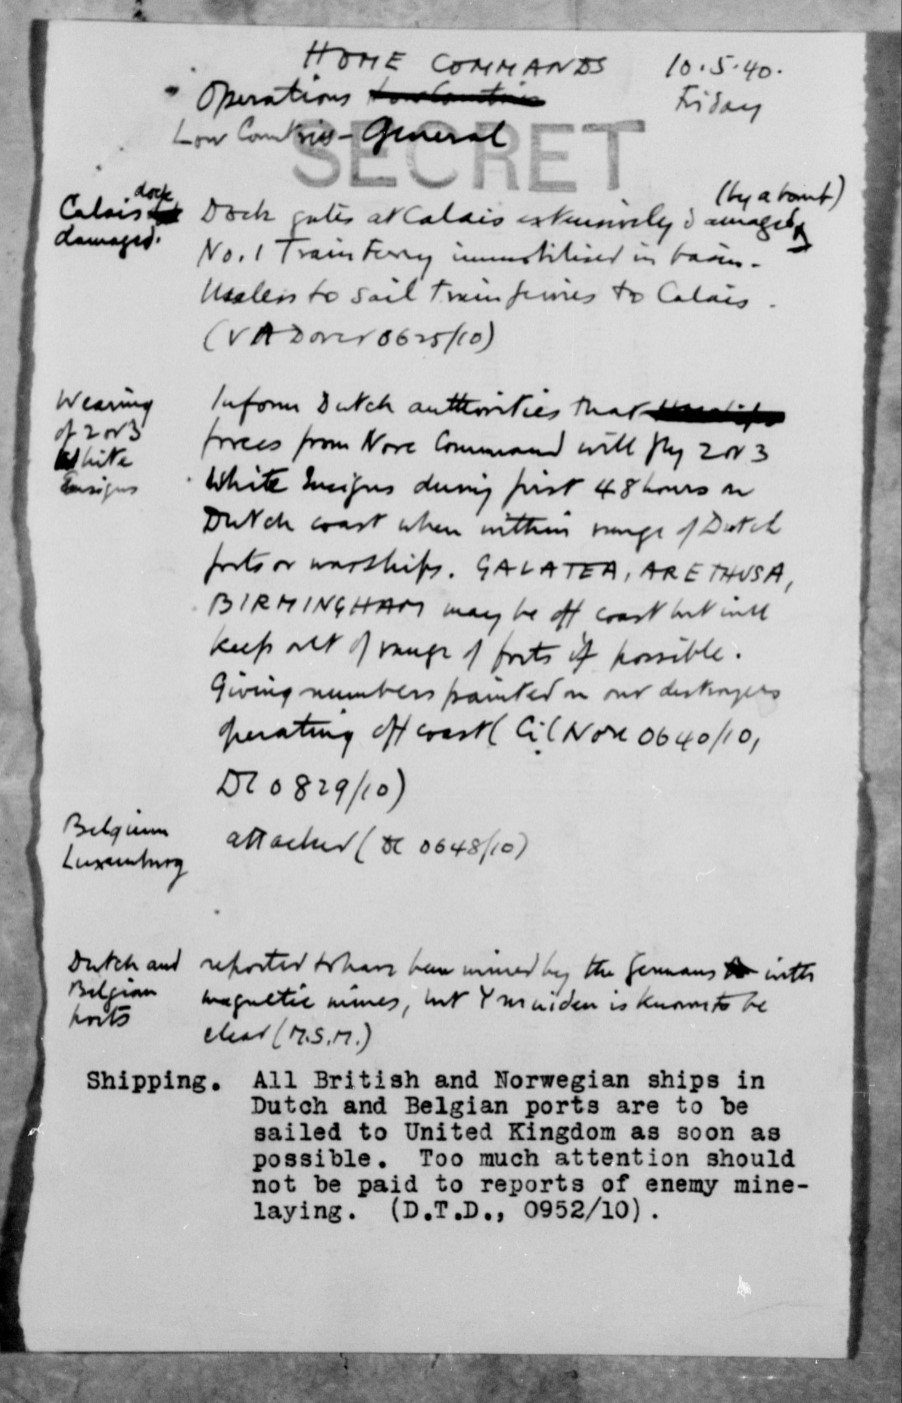 HOME COMMANDS 10.5.40.
Operations Friday
Low Countries - General
SECRET
Calais dock
damaged.
Dock gates at Calais extensively damaged (by a bomb)
No. 1 Train Ferry immobilised in basin.
Useless to sail train ferries to Calais.
(VA Dover 0625/10)
Wearing
of 2 or 3
White
Ensigns
Inform Dutch authorities that
forces from Nore Command will fly 2 or 3
White Ensigns during first 48 hours on
Dutch coast when within range of Dutch
forts or warships. GALATEA, ARETHUSA,
BIRMINGHAM may be off coast but will
keep out of range of forts if possible.
Giving numbers painted on our destroyers
operating off coast (C in C Nore 0640/10,
0829/10)
Belgium
Luxemburg
attacked ( 0648/10)
Dutch and
Belgian
ports
reported to have been mined by the Germans with
magnetic mines, but Ymuiden is known to be
clear (M.S.M.)
Shipping. All British and Norwegian ships in
Dutch and Belgian ports are to be
sailed to United Kingdom as soon as
possible. Too much attention should
not be paid to reports of enemy mine-
laying. (D.T.D., 0952/10).